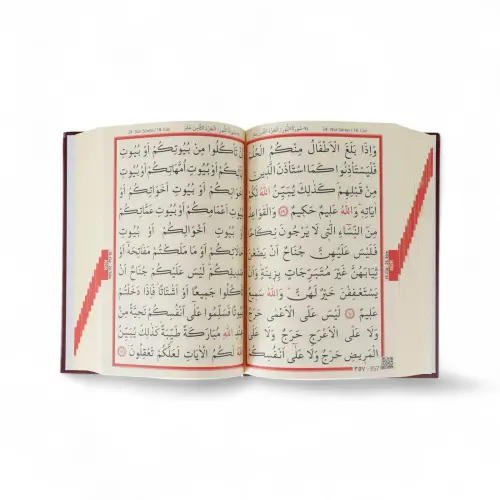 ٢٤- سُورَةُ النُّورِ، اَلْجُزْءُ الثَّامِنُ عَشَرَ 24- Nur Sûresi / 18. Cüz
وَاِذَا بَلَغَ الْاَطْفَالُ مِنْكُمُ الْحُلُ
فَلْيَسْتَأْذِنُوا كَمَا اسْتَأْذَنَ الَّذِينَ
مِنْ قَبْلِهِمْ كَذٰلِكَ يُبَيِّنُ اللّٰهُ
اٰيَاتِهِ وَاللّٰهُ عَلِيمٌ حَكِيمٌ ﴿٥٩﴾ وَالْقَوَاعِدُ
مِنَ النِّسَاءِ الّٰتِي لَا يَرْجُونَ نِكَا
فَلَيْسَ عَلَيْهِنَّ جُنَاحٌ اَنْ يَضَعْنَ
ثِيَابَهُنَّ غَيْرَ مُتَبَرِّجَاتٍ بِزِينَةٍ وَاَنْ
يَسْتَعْفِفْنَ خَيْرٌ لَهُنَّ وَاللّٰهُ سَمِيعٌ
عَلِيمٌ ﴿٦٠﴾ لَيْسَ عَلَى الْاَعْمٰى حَرَجٌ
وَلَا عَلَى الْاَعْرَجِ حَرَجٌ وَلَا عَلَى
الْمَرِيضِ حَرَجٌ وَلَا عَلٰى اَنْفُسِكُمْ
٣٥٧ - 357
24- Nur Sûresi / 18. Cüz
تَأْكُلُوا مِنْ بُيُوتِكُمْ اَوْ بُيُوتِ
اَوْ بُيُوتِ اُمَّهَاتِكُمْ اَوْ بُيُوتِ
اَوْ بُيُوتِ اَخَوَاتِكُمْ اَوْ
بُيُوتِ اَعْمَامِكُمْ اَوْ بُيُوتِ عَمَّاتِكُمْ
بُيُوتِ اَخْوَالِكُمْ اَوْ بُيُوتِ
خَالَاتِكُمْ اَوْ مَا مَلَكْتُمْ مَفَاتِحَهُ اَوْ
لَيْسَ عَلَيْكُمْ جُنَاحٌ اَنْ
تَأْكُلُوا جَمِيعًا اَوْ اَشْتَاتًا فَاِذَا دَخَلْتُمْ
بُيُوتًا فَسَلِّمُوا عَلٰى اَنْفُسِكُمْ تَحِيَّةً مِنْ
عِنْدِ اللّٰهِ مُبَارَكَةً طَيِّبَةً كَذٰلِكَ يُبَيِّنُ
اللّٰهُ لَكُمُ الْاٰيَاتِ لَعَلَّكُمْ تَعْقِلُونَ ﴿٦١﴾